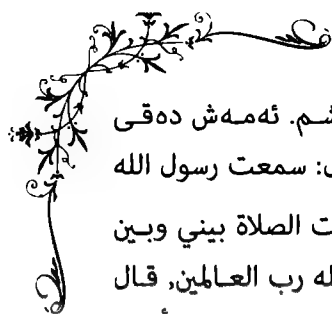 شم. ئەمەش دەقى
: سمعت رسول الله
ت الصلاة بيني وبين
له رب العالمين, قال